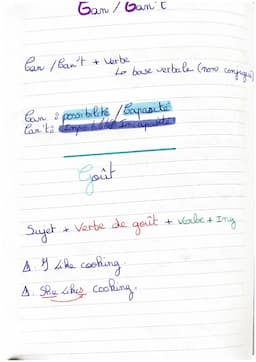 Can / Can't
Can / Can't + Verbe
↳ base verbale (non conjugué)
Can : possibilité / Capacité
Can't : Impossibilité Incapacité
Goût
Sujet + Verbe de goût + Verbe + Ing
⚠ I Like cooking.
⚠ She Likes cooking.